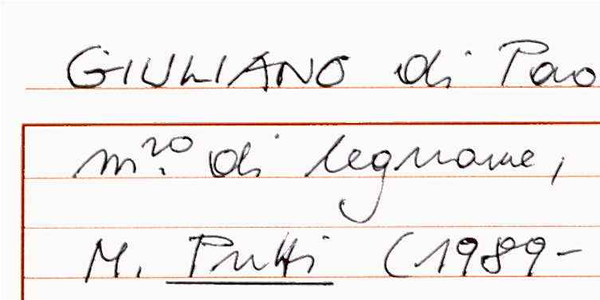 GIULIANO di Pao
m.ro di legname,
M. Prutti (1989-